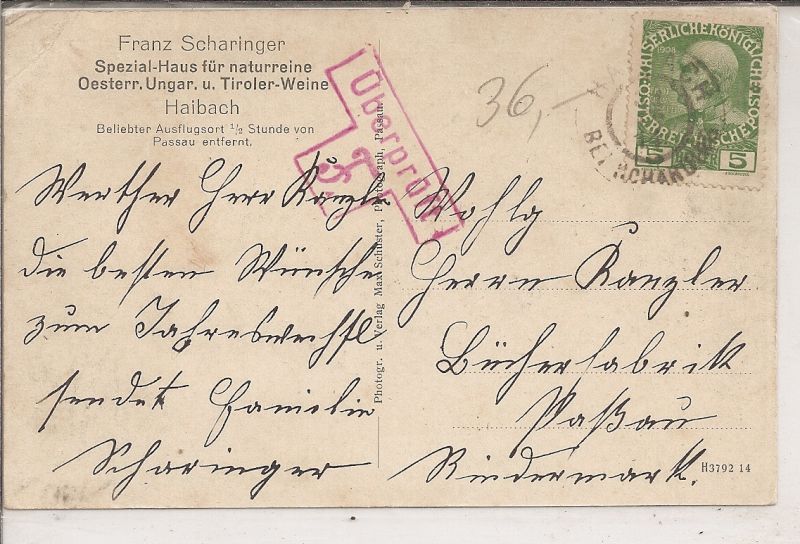 Franz Scharinger
Spezial-Haus für naturreine
Oesterr. Ungar. u. Tiroler-Weine
Haibach
Beliebter Ausflugsort ½ Stunde von
Passau entfernt.
Werther Herr Kanzler
die besten Wünsche
zum Jahreswechsel
sendet Familie
Scharinger
Photogr. u. Verlag Max Schuster, Photograph, Passau.
Überprüft
36,-
KAISERLICHE KÖNIGLICHE
1908
5 5
BEI SCHARDING
Wohlg
Herrn Kanzler
Bücherfabrik
Paßau
Rindermarkt.
H3792 14